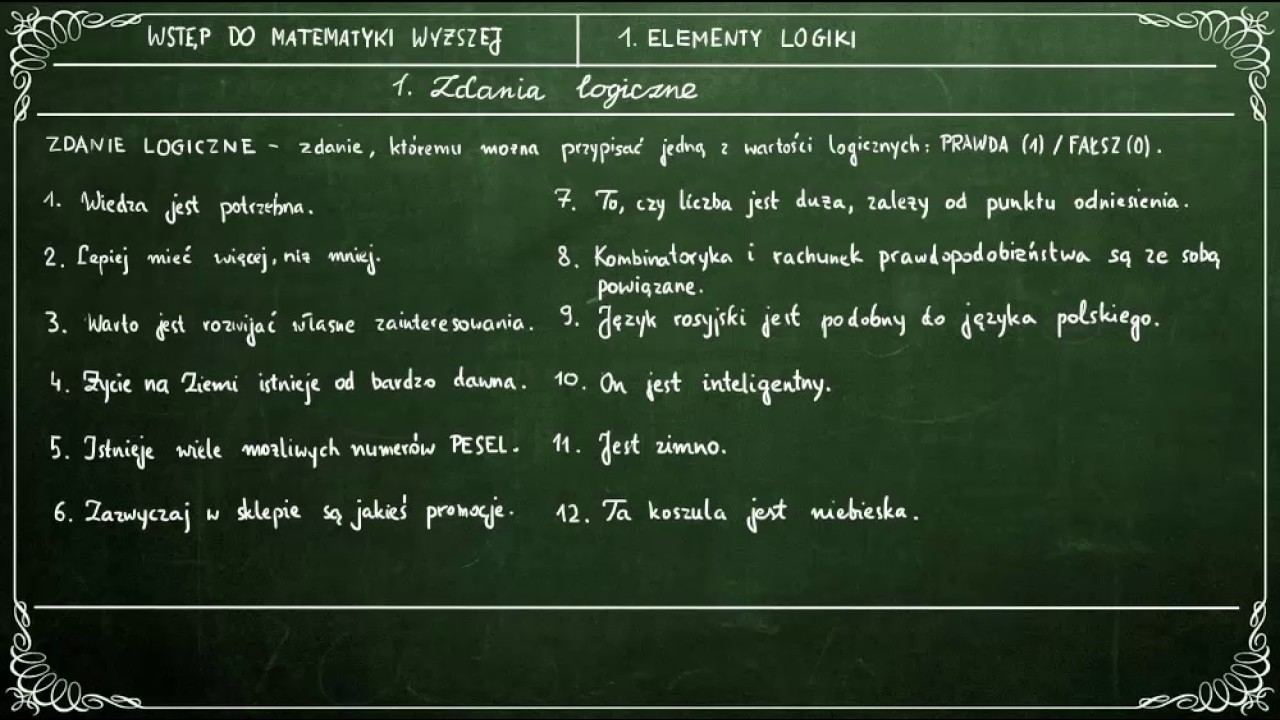 WSTĘP DO MATEMATYKI WYŻSZEJ
1. ELEMENTY LOGIKI
1. Zdania logiczne
ZDANIE LOGICZNE - zdanie, któremu można przypisać jedną z wartości logicznych: PRAWDA (1) / FAŁSZ (0).
1. Wiedza jest potrzebna.
2. Lepiej mieć więcej, niż mniej.
3. Warto jest rozwijać własne zainteresowania.
4. Życie na Ziemi istnieje od bardzo dawna.
5. Istnieje wiele możliwych numerów PESEL.
6. Zazwyczaj w sklepie są jakieś promocje.
7. To, czy liczba jest duża, zależy od punktu odniesienia.
8. Kombinatoryka i rachunek prawdopodobieństwa są ze sobą
powiązane.
9. Język rosyjski jest podobny do języka polskiego.
10. On jest inteligentny.
11. Jest zimno.
12. Ta koszula jest niebieska.